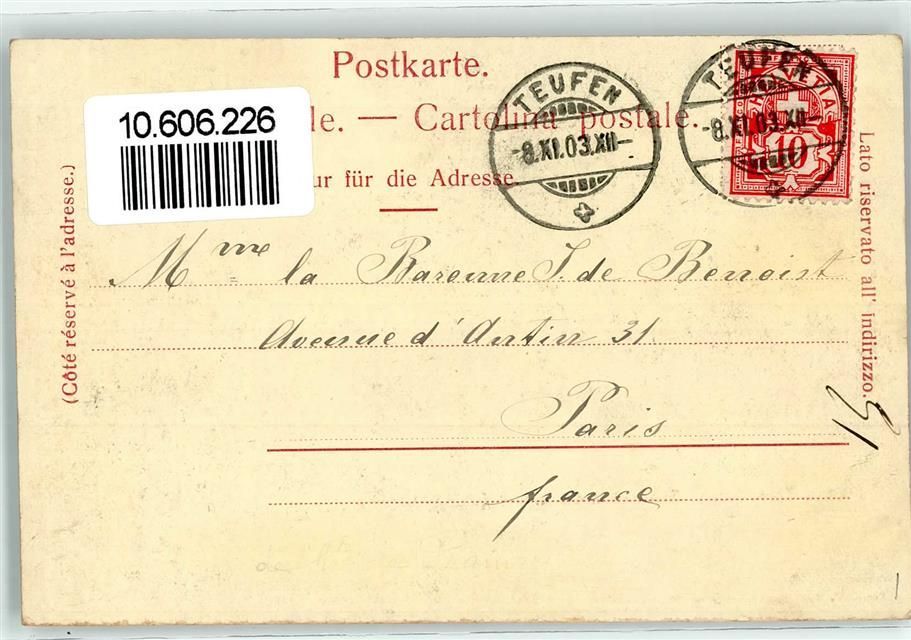 Postkarte.
10.606.226
le. — Cartolina postale.
ur für die Adresse.
TEUFEN
-8.XI.03.XII-
TEUFEN
-8.XI.03.XII-
HELVETIA
10
(Côté réservé à l'adresse.)
Lato riservato all' indirizzo.
Mme la Baronne J. de Benoist
Avenue d'Antin 31
Paris
france
31